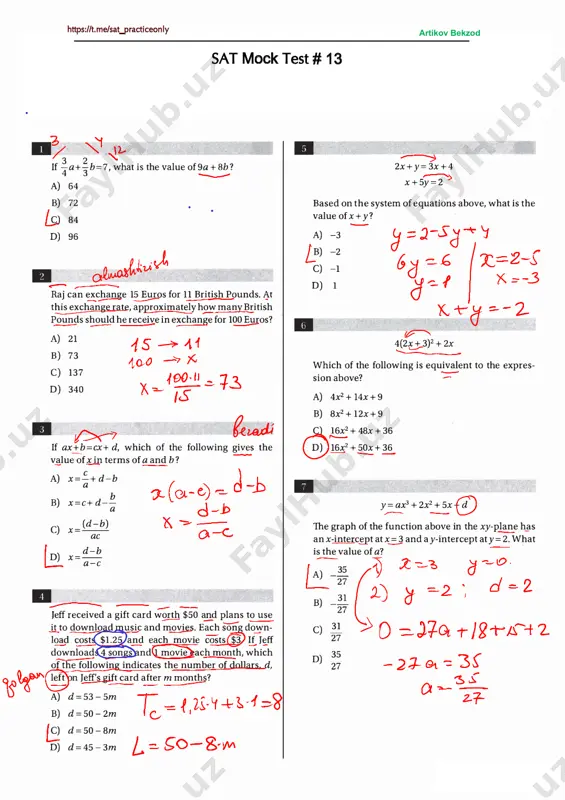 https://t.me/sat_practiceonly
Artikov Bekzod
SAT Mock Test # 13
1
3 4 12
If 3/4 a + 2/3 b = 7, what is the value of 9a + 8b?
A) 64
B) 72
C) 84
D) 96
2
almashtirish
Raj can exchange 15 Euros for 11 British Pounds. At
this exchange rate, approximately how many British
Pounds should he receive in exchange for 100 Euros?
A) 21
B) 73
C) 137
D) 340
15 → 11
100 → x
x = 100·11/15 = 73
3
beradi
If ax+b=cx+d, which of the following gives the
value of x in terms of a and b?
A) x = c/a + d − b
B) x = c + d − b/a
C) x = (d−b)/ac
D) x = d−b/a−c
x(a−c) = d−b
x = d−b/a−c
4
Jeff received a gift card worth $50 and plans to use
it to download music and movies. Each song down-
load costs $1.25 and each movie costs $3. If Jeff
downloads 4 songs and 1 movie each month, which
of the following indicates the number of dollars, d,
left on Jeff's gift card after m months?
qolgan
A) d = 53 − 5m
B) d = 50 − 2m
C) d = 50 − 8m
D) d = 45 − 3m
Tc = 1,25·4 + 3·1 = 8
L = 50 − 8·m
5
2x + y = 3x + 4
x + 5y = 2
Based on the system of equations above, what is the
value of x + y?
A) −3
B) −2
C) −1
D) 1
y = 2 − 5y + 4
6y = 6
y = 1
x = 2 − 5
x = −3
x + y = −2
6
4(2x + 3)² + 2x
Which of the following is equivalent to the expres-
sion above?
A) 4x² + 14x + 9
B) 8x² + 12x + 9
C) 16x² + 48x + 36
D) 16x² + 50x + 36
7
y = ax³ + 2x² + 5x + d
The graph of the function above in the xy-plane has
an x-intercept at x = 3 and a y-intercept at y = 2. What
is the value of a?
A) −35/27
B) −31/27
C) 31/27
D) 35/27
1) x = 3 y = 0
2) y = 2 ; d = 2
0 = 27a + 18 + 15 + 2
−27a = 35
a = 35/27
FaylHub.uz
FaylHub.uz
FaylHub.uz
FaylHub.uz